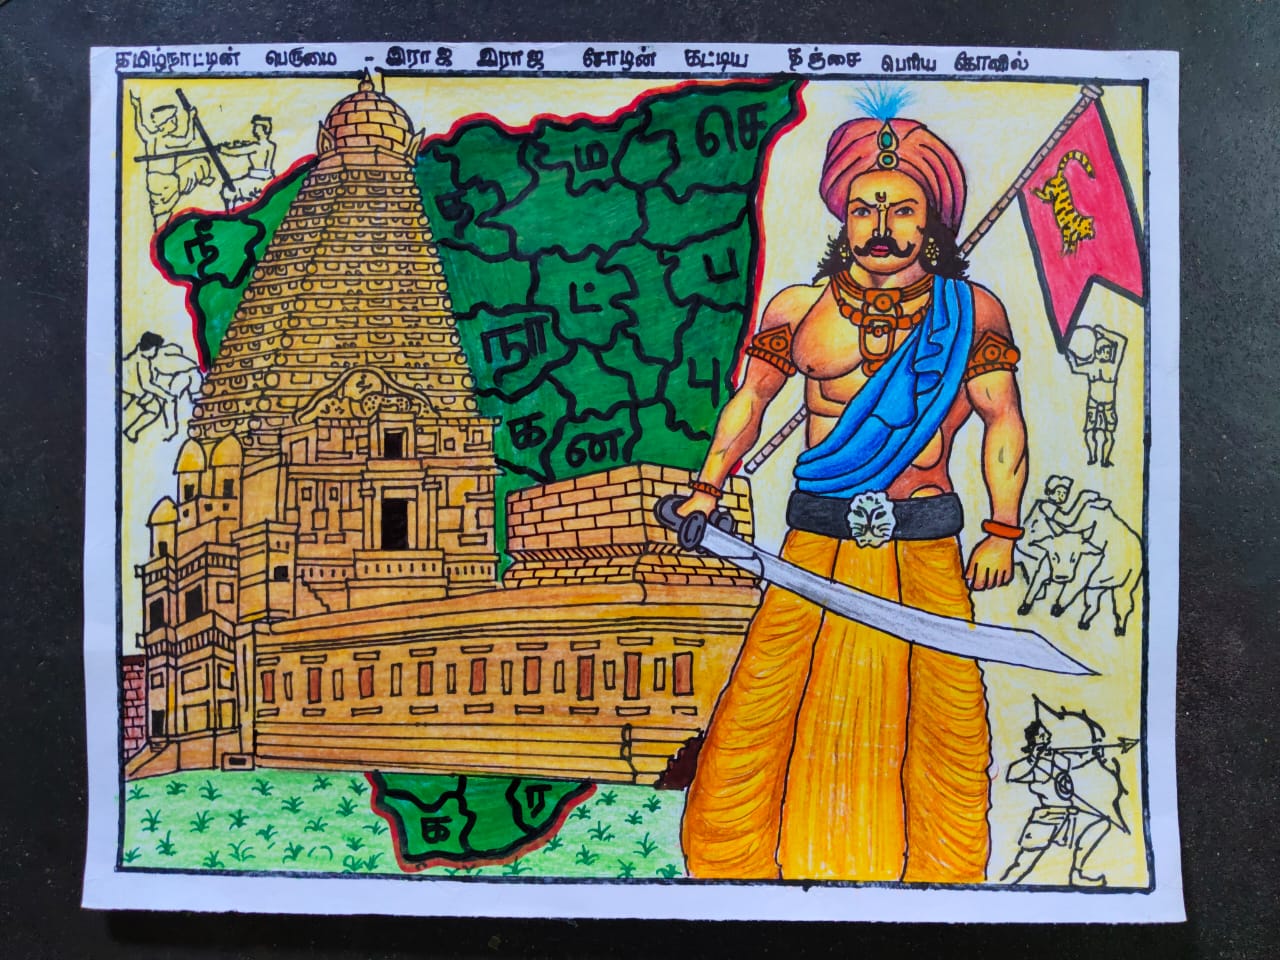 தமிழ்நாட்டின் பெருமை - இராஜ இராஜ சோழன் கட்டிய தஞ்சை பெரிய கோவில்
செ
ம
த
நீ
ப
ட்
நா
பு
க
ன
க
ர